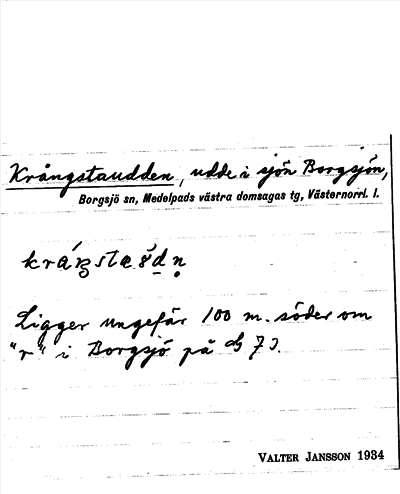 Krångstaudden, udde i sjön Borgsjön,
Borgsjö sn, Medelpads västra domsagas tg, Västernorrl. l.
Ligger ungefär 100 m. söder om
"r" i Borgsjö på G 7 J.
VALTER JANSSON 1934